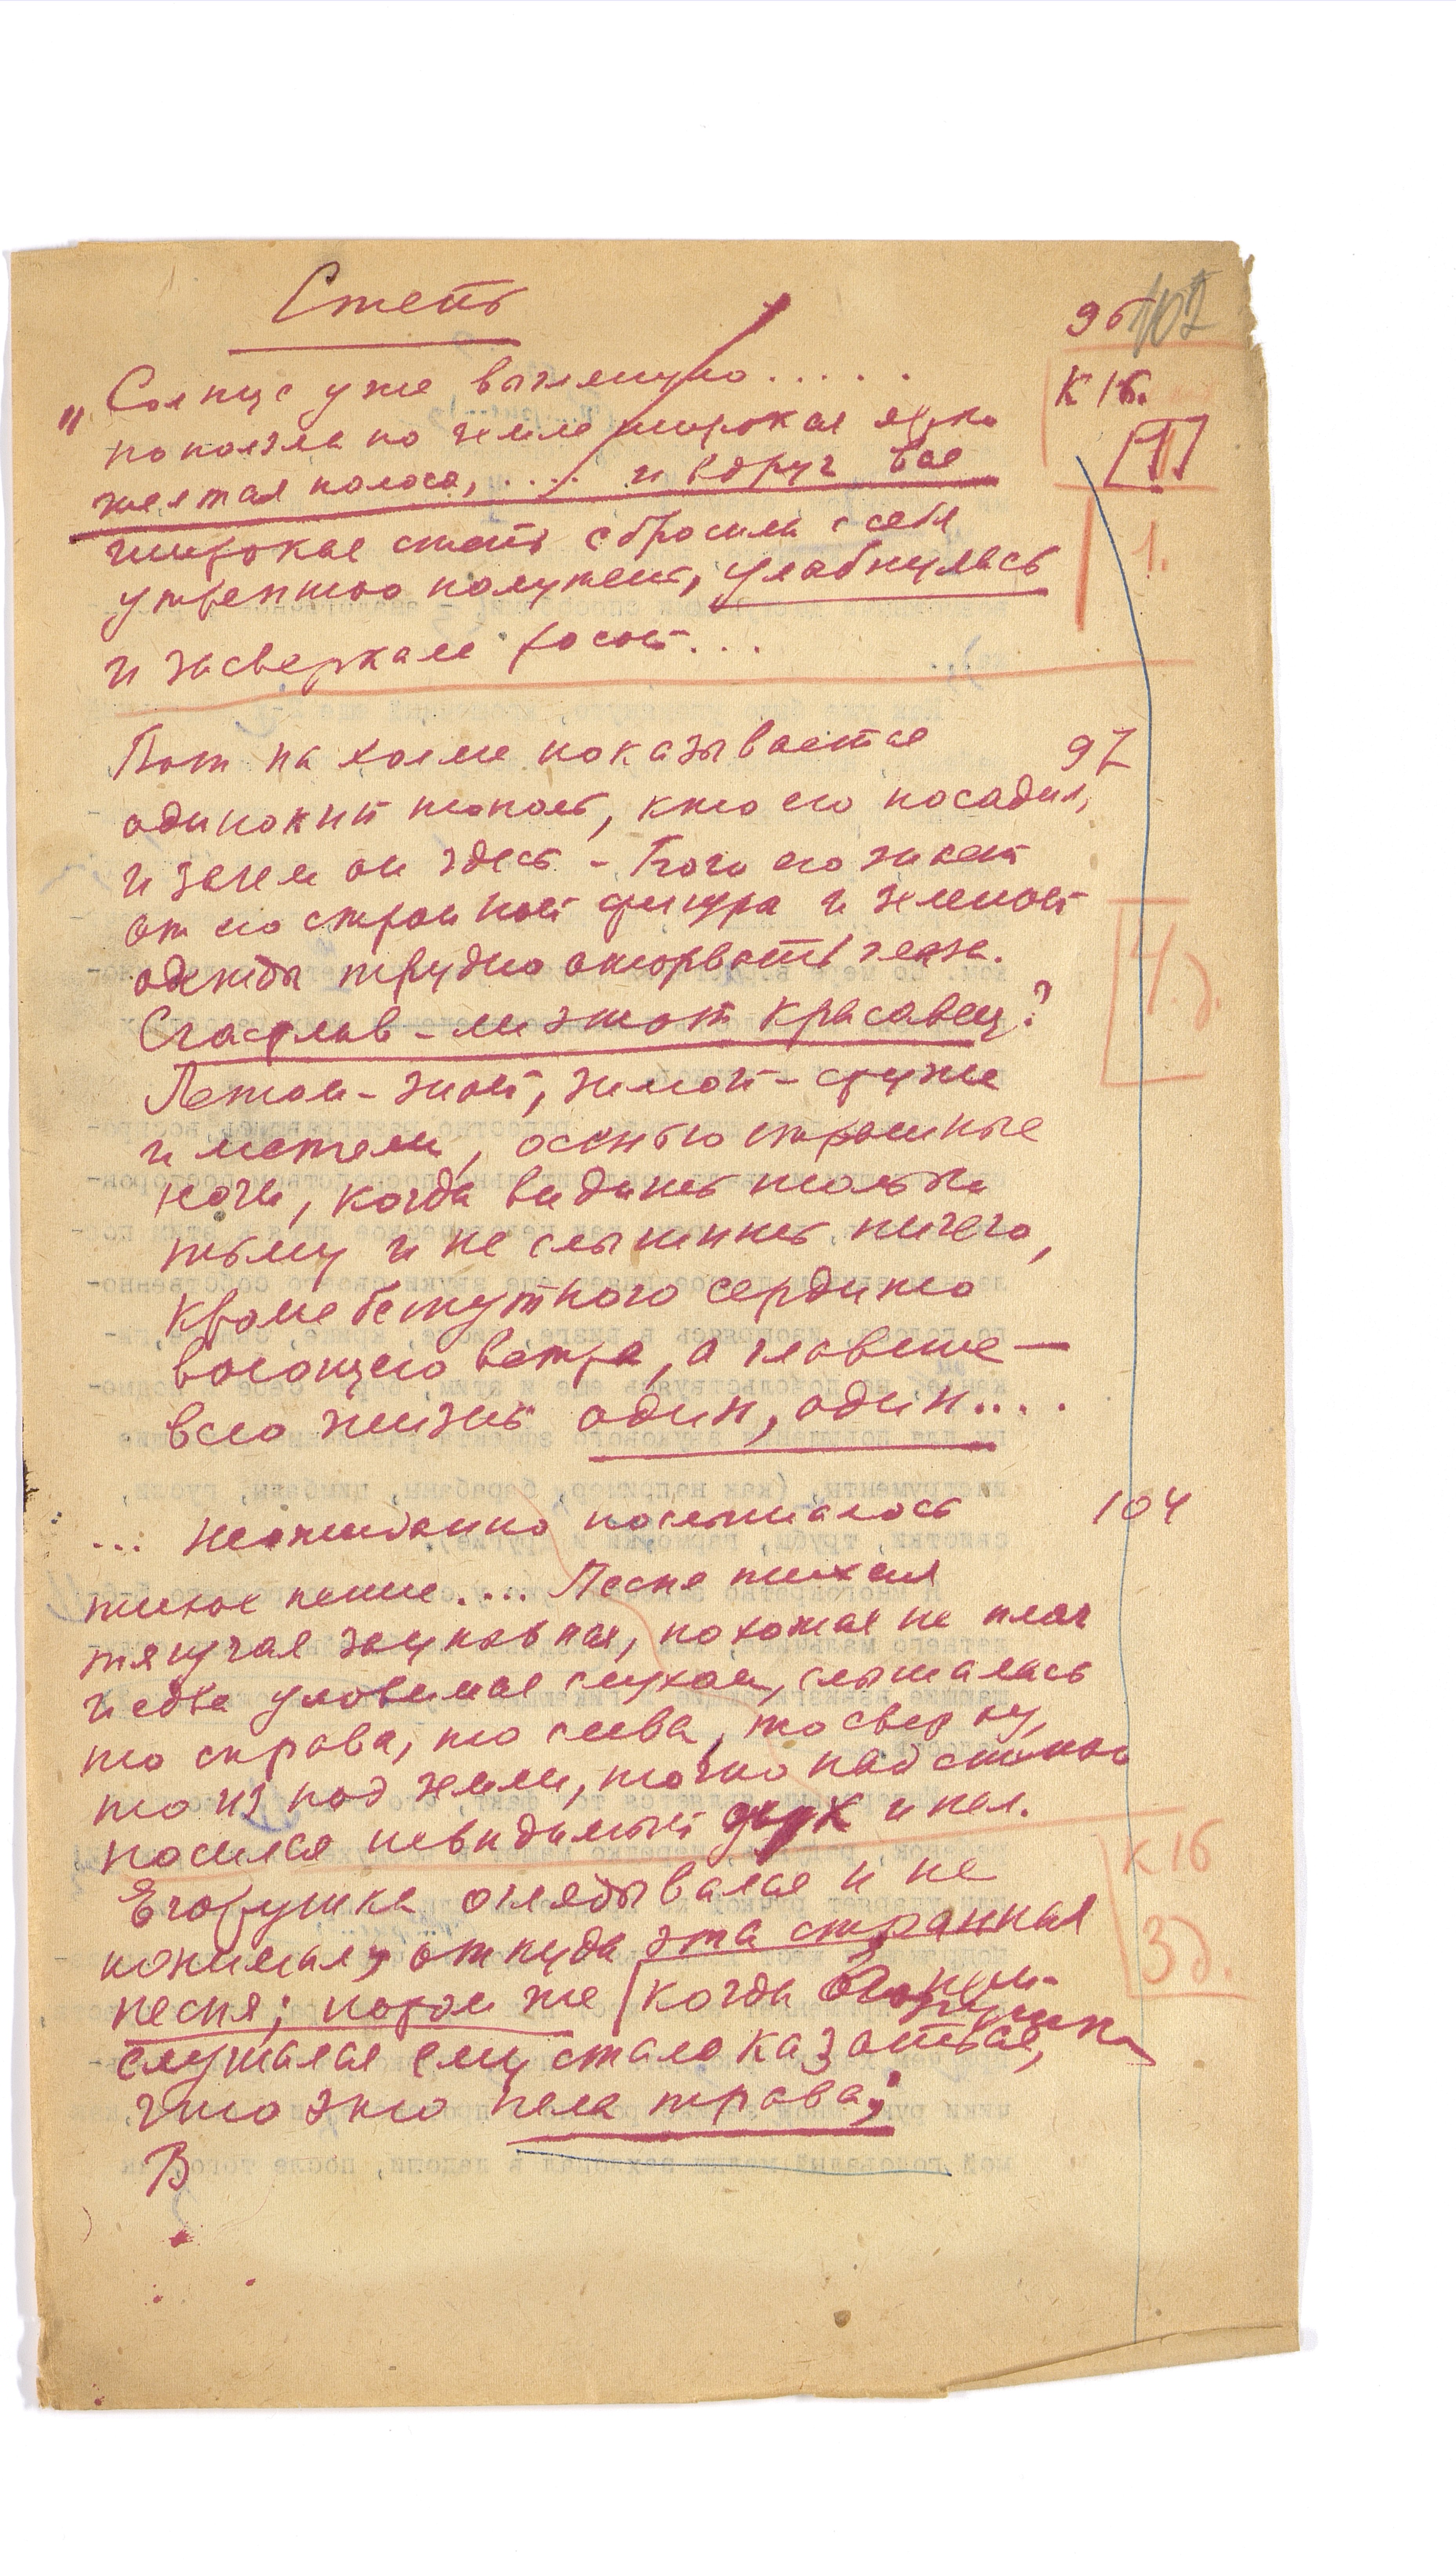 Степь
96 102
"Солнце уже выглянуло.....
К 16.
поползла по земле широкая ярко
[1]
желтая полоса, .... и вдруг вся
широкая степь сбросила с себя
1.
утреннюю полутень, улыбнулась
и засверкала росой...
Вот на холме показывается
97
одинокий тополь, кто его посадил,
и зачем он здесь - Бог его знает
от его стройной фигуры и зеленой
одежды трудно оторвать глаза.
4.д.
Счастлив-ли этот красавец?
Летом - зной, зимой - стужа
и метели, осенью страшные
ночи, когда видишь только
тьму и не слышишь ничего,
кроме беспутного сердито
воющего ветра, а главное —
всю жизнь один, один....
... неожиданно послышалось
104
тихое пение.... Песня тихая
тягучая заунывная, похожая на плач
и едва уловимая слухом, слышалась
то справа, то слева, то сверху,
то из под земли, точно над степью
носился невидимый дух и пел.
К 16
Егорушка оглядывался и не
понимал, откуда эта странная
3д.
песня; потом же когда он при-
слушался ему стало казаться,
что это пела трава;
В